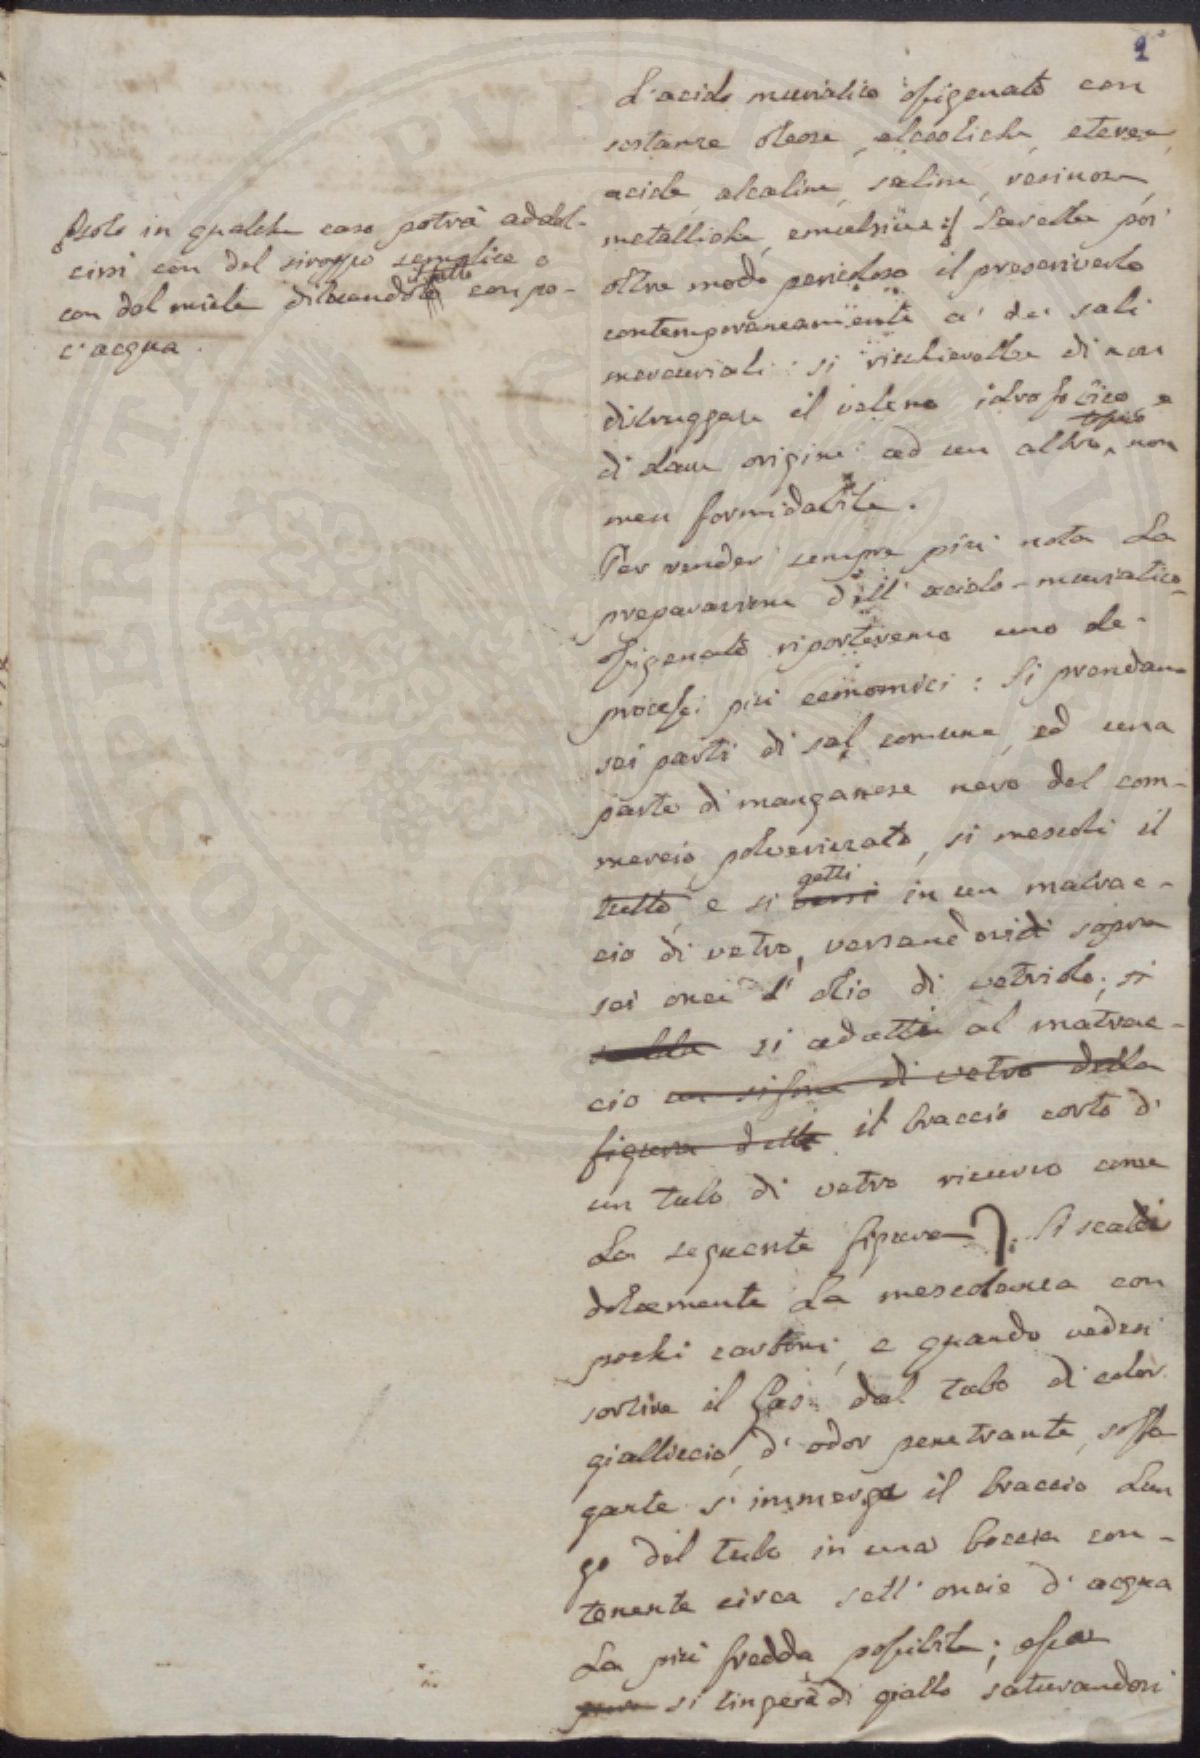 2
L'acido muriatico ossigenato con
sostanze oleose, alcooliche, eteree,
acide, alcaline, saline, resinose,
metalliche, emulsive: Sarebbe poi
oltre modo pericoloso il prescriverlo
contemporaneamente a' de' sali
mercuriali: si rischierebbe di non
distruggere il veleno idrofobico e
di dare origine ad un altro tossico non
men formidabile.
Per render sempre più nota la
preparazione dell' acido-muriatico-
ossigenato riporteremo uno de'
processi più economici: Si prendano
sei parti di sal comune, ed una
parte di manganese nero del com-
mercio polverizzato, si mescoli il
tutto, e si versi getti in un matrac-
cio di vetro, versandovisi sopra
sei once d' olio di vetriolo; si
si adatti al matrac-
cio un sifone di vetro della
figura della il braccio corto d'
un tubo di vetro ricurvo come
la seguente figura. Si scaldi
dolcemente la mescolanza con
pochi carboni, e quando vedesi
sortire il Gas dal tubo di color
gialliccio, d' odor penetrante, soffo
gante s' immerga il braccio lun
go del tubo in una boccia con-
tenente circa sett' oncie d' acqua
la più fredda possibile; essa
si tingerà di giallo saturandosi
Solo in qualche caso potrà addol-
cirsi con del siroppo semplice o
con del miele diluendolo con po-
c' acqua.